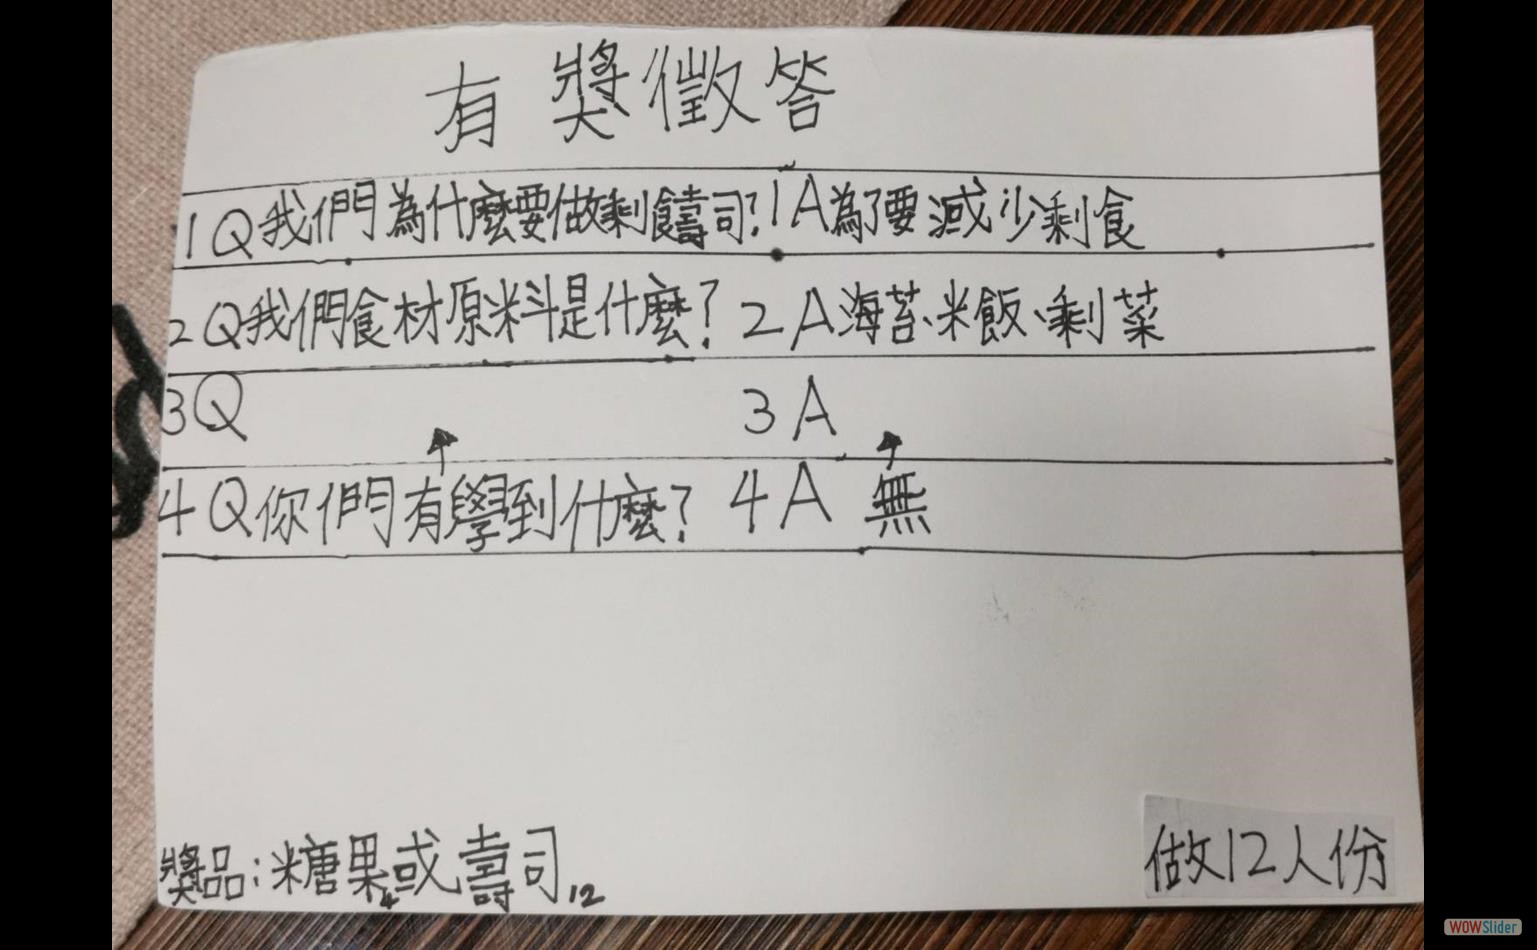 有獎徵答
1Q我們為什麼要做剩食壽司?1A為了要減少剩食
2Q我們食材原料是什麼?2A海苔、米飯、剩菜
3Q 3A
4Q你們有學到什麼?4A無
獎品:糖果4或壽司12
做12人份
WOWSlider